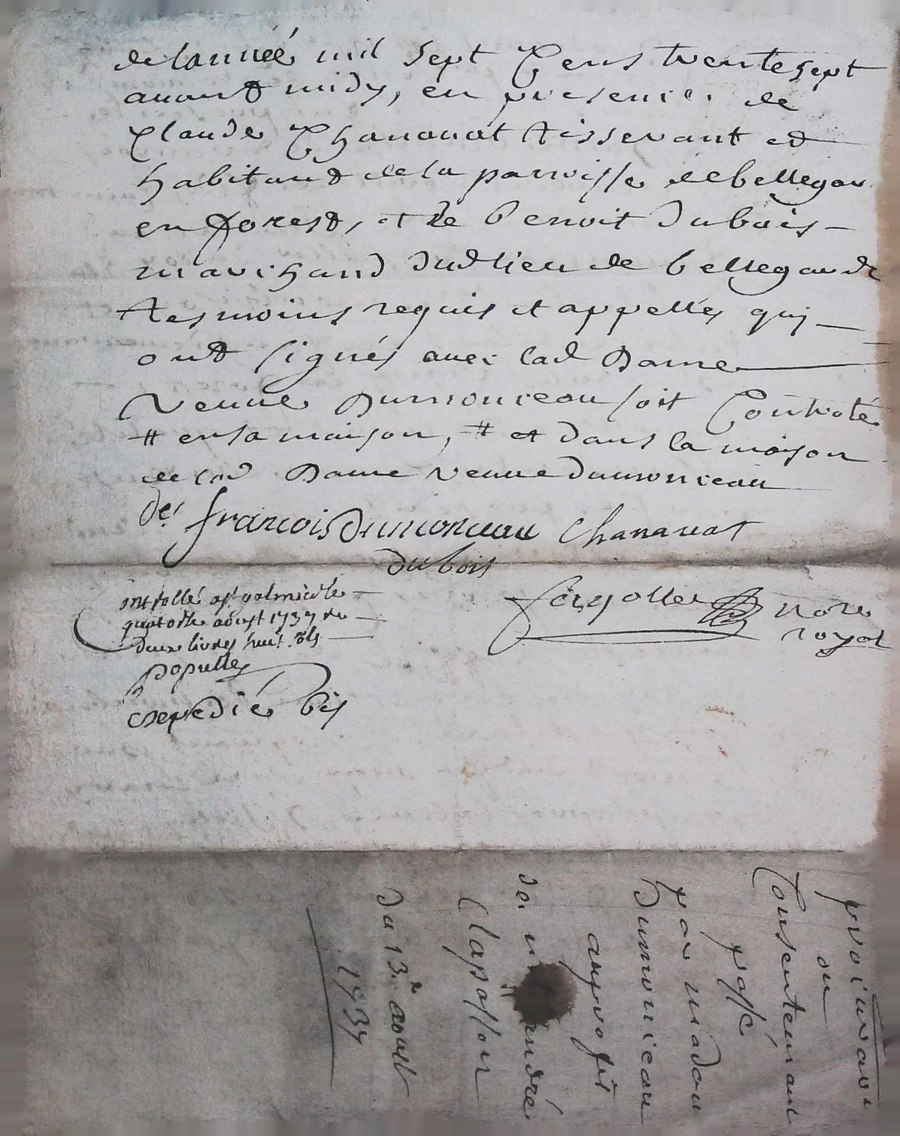 de lannéé mil sept Cens trente sept
avant midy, en presence de
Claude Chanavat tisserant et
habitant de la parroisse de bellegar
en forest, et de Benoit Dubois
marchand dudlieu de bellegarde
tesmoins requis et appellés quj
ont signés avec lad Dame
Veuve Dumonceau soit Controlé
# en sa maison, # et dans la maison
de lad Dame Veuve dumonceau
francois Dumonceau Chanavat
du bois
Fayolle Nore
royal
quatorze aoust 1737 Re
deux livres huit sols
expedié bis
procura
ou
Consentemant
passé
par madam
Dumonceau
au profit
de andré
Clapasson
Du 13e aoust
1737